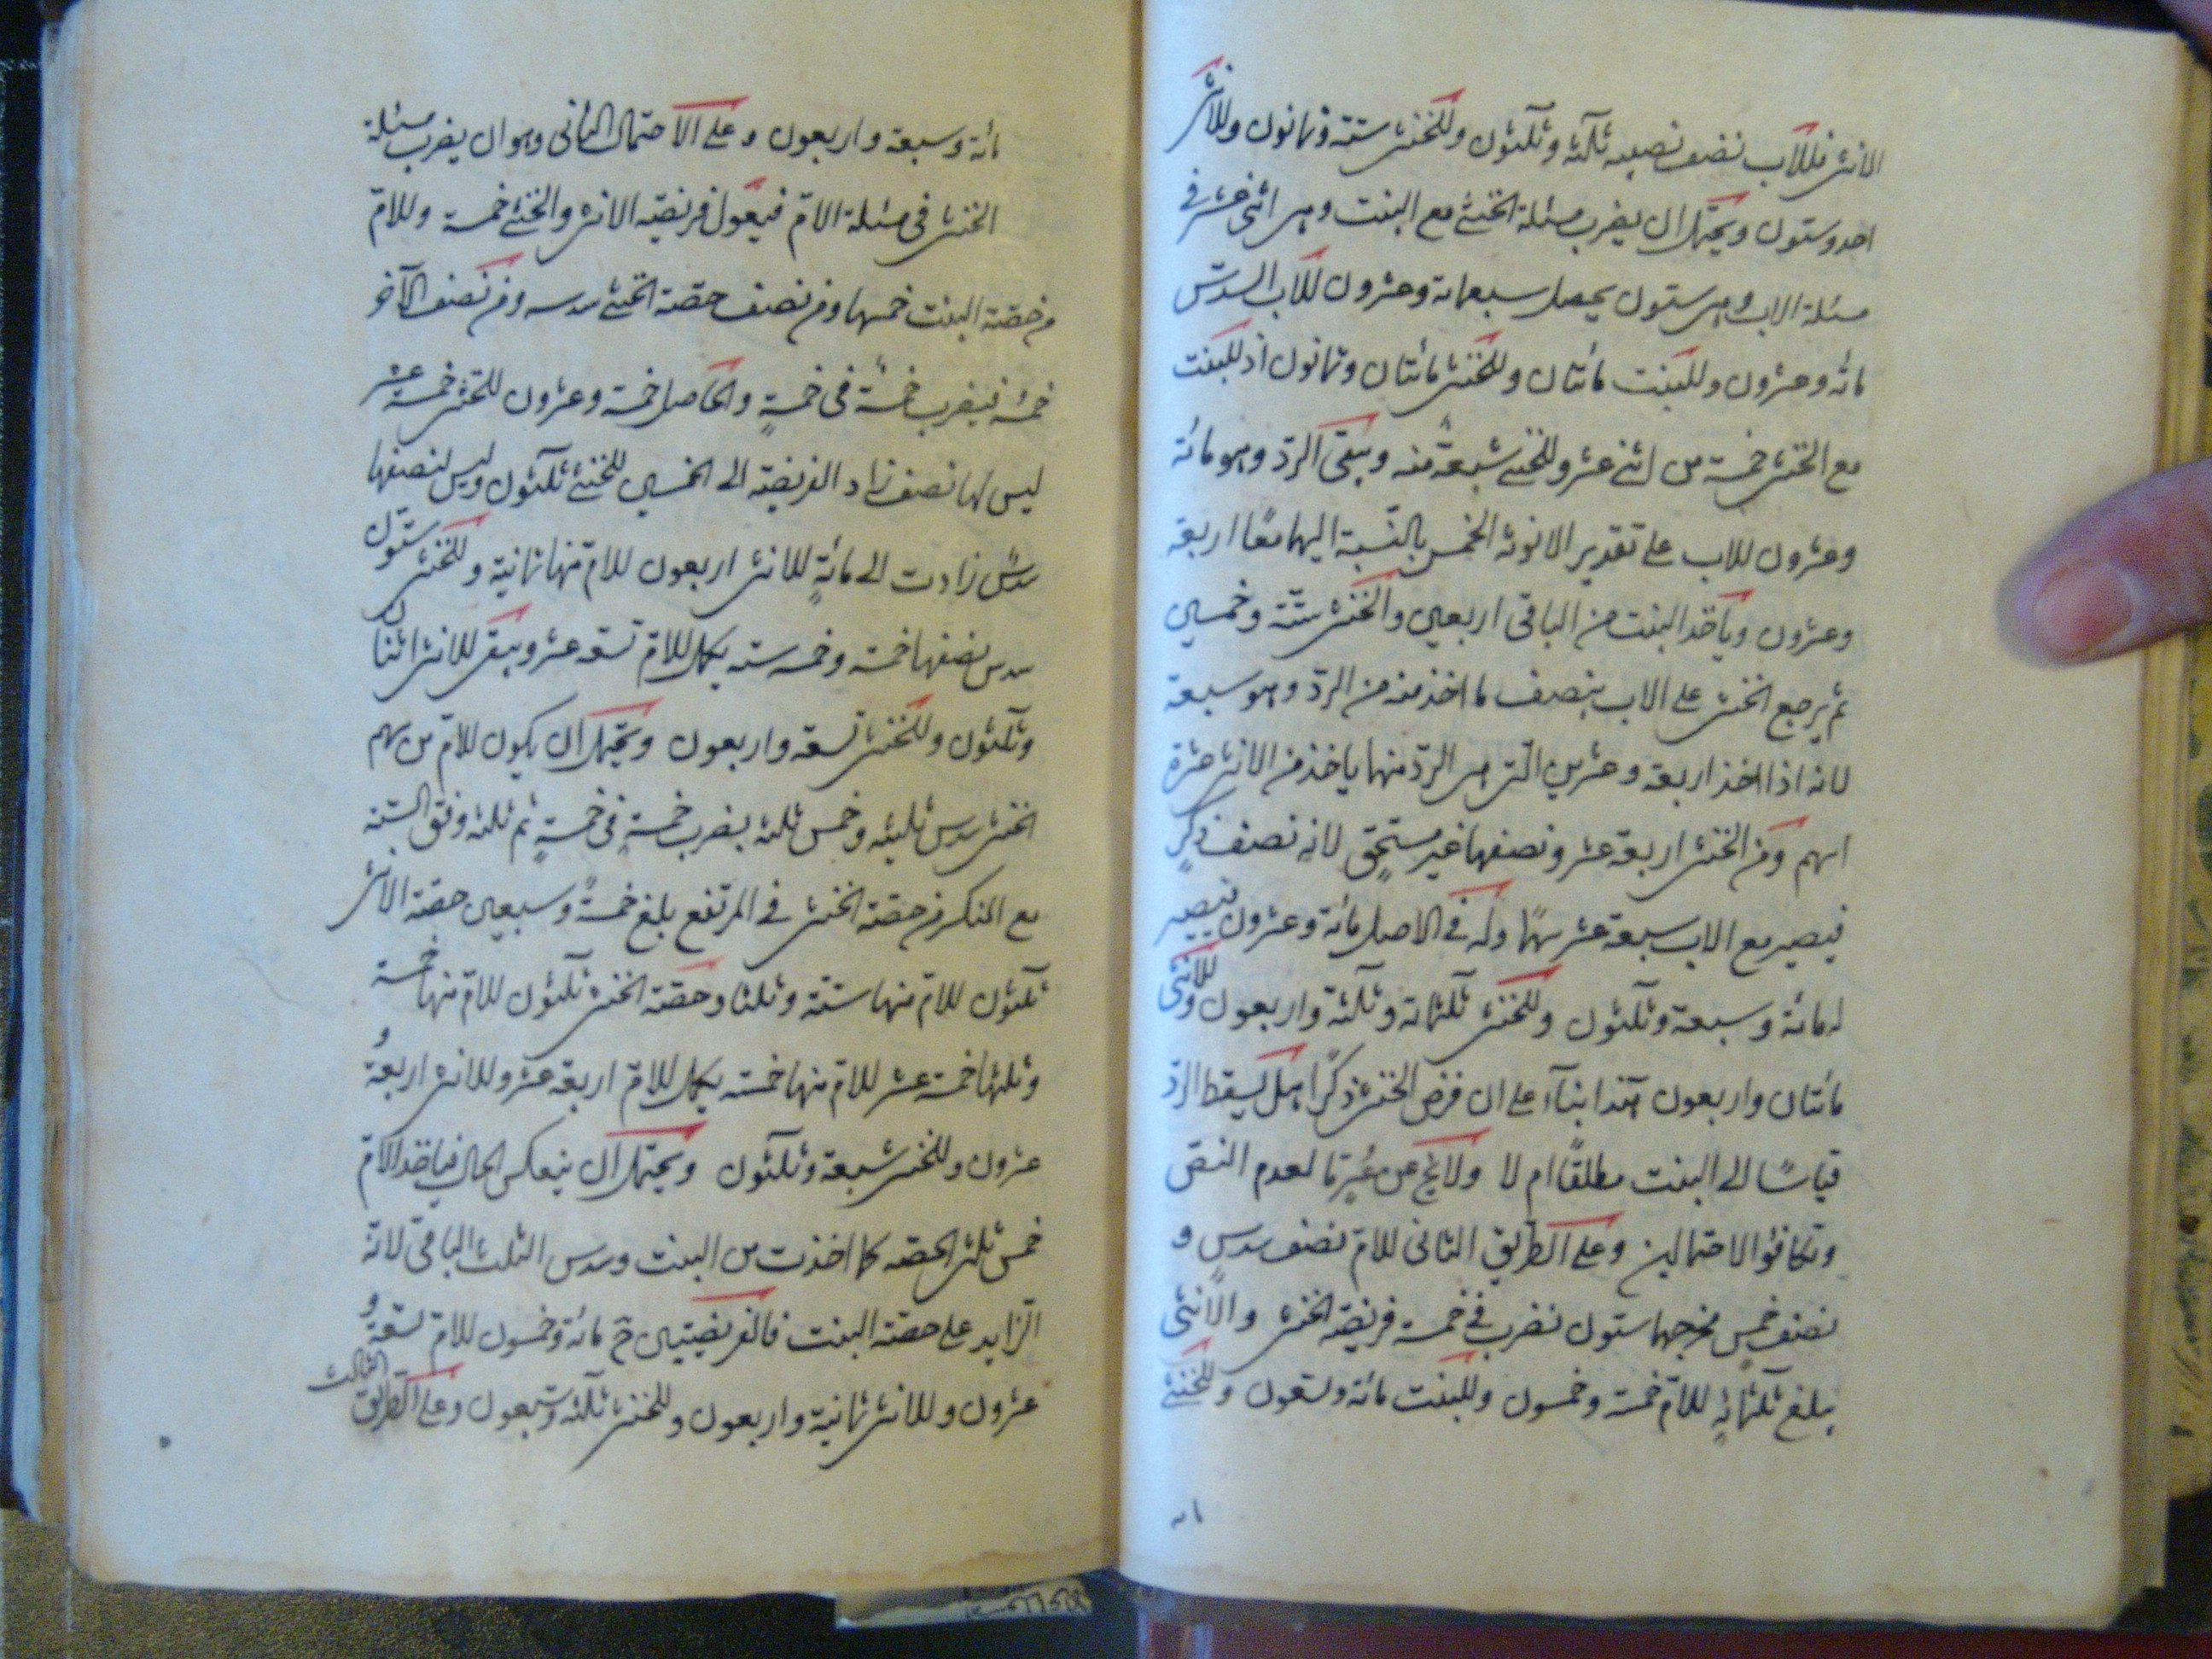 الانثى فللاب نصف نصيبه ثلثة وثلثون وللخنثى ستة وثمانون وللانثى
احد وستون ويحتمل ان يضرب مسئلة الخنثى مع البنت وهى اثنى عشر فى
مسئلة الاب وهى ستون يحصل سبعمائة وعشرون للاب السدس
مائه وعشرون وللبنت مائتان وللخنثى مائتان وثمانون اذ للبنت
مع الخنثى خمسة من اثنى عشر وللخنثى سبعة منه ويبقى الرد وهو مائة
وعشرون للاب على تقدير الانوثه الخمس بالنسبة اليهما معًا اربعة
وعشرون وياخذ البنت من الباقى اربعين والخنثى ستة وخمسين
ثم يرجع الخنثى على الاب بنصف ما اخذ منه من الرد وهو سبعة
لانه اذا اخذ اربعة وعشرين التى هى الرد منها ياخذ من الانثى عشرة
اسهم ومن الخنثى اربعة عشر ونصفها غير مستحق لانه نصف ذكر
فيصير مع الاب سبعة عشر سهمًا وله فى الاصل مائة وعشرون فيصير
له مائة وسبعة وثلثون وللخنثى ثلثمائة وثلثة واربعون وللانثى
مائتان واربعون هذا بناء على ان فرض الخنثى ذكرًا هل يسقط الرد
قياسًا الى البنت مطلقًا ام لا ولا يخ عن عسر ما لعدم النص
وتكافؤ الاحتمالين وعلى الطريق الثانى للام نصف سدس و
نصف خمس مخرجهما ستون نضرب فى خمسة فريضة الخنثى والانثى
يبلغ ثلثمائة للام خمسة وخمسون وللبنت مائة وتسعون وللخنثى
مائة وسبعة واربعون وعلى الاحتمال الثانى وهو ان يضرب مسئلة
الخنثى فى مسئلة الام فيعول فريضة الانثى والخنثى خمسة وللام
من حصة البنت خمسها ومن نصف حصة الخنثى سدسه ومن نصف الآخر
خمسه فيضرب خمسة فى خمسةٍ والحاصل خمسة وعشرون للخنثى خمسة عشر
ليس لها نصف زاد الفريضة الى الخمسين للخنثى ثلثون وليس لنصفها
سدس زادت الى مائةٍ للانثى اربعون للام منها ثمانية وللخنثى ستون
سدس نصفها خمسة وخمسه ستة يكمل للام تسعة عشر ويبقى للانثى اثنان
وثلثون وللخنثى تسعة واربعون ويحتمل ان يكون للام من سهم
الخنثى سدس ثلثيه وخمس ثلثه يضرب خمسة فى خمسةٍ ثم ثلثه وفق الستة
مع المنكر من حصة الخنثى فى المرتفع بلغ خمسةً وسبعين حصة الانثى
ثلثون للام منها ستة وثلثا وحصة الخنثى ثلثون للام منها خمسة
وثلثها خمسة عشر للام منها خمسة يكمل للام اربعة عشر وللانثى اربعة و
عشرون وللخنثى سبعة وثلثون ويحتمل ان ينعكس الحال فياخذ الام
خمس ثلثى الحصه كما اخذت من البنت وسدس الثلث الباقى لانه
الزايد على حصة البنت فالفريضتين ح مائة وخمسون للام تسعة و
عشرون وللانثى ثمانية واربعون وللخنثى ثلثة وسبعون وعلى الطريق الثالث